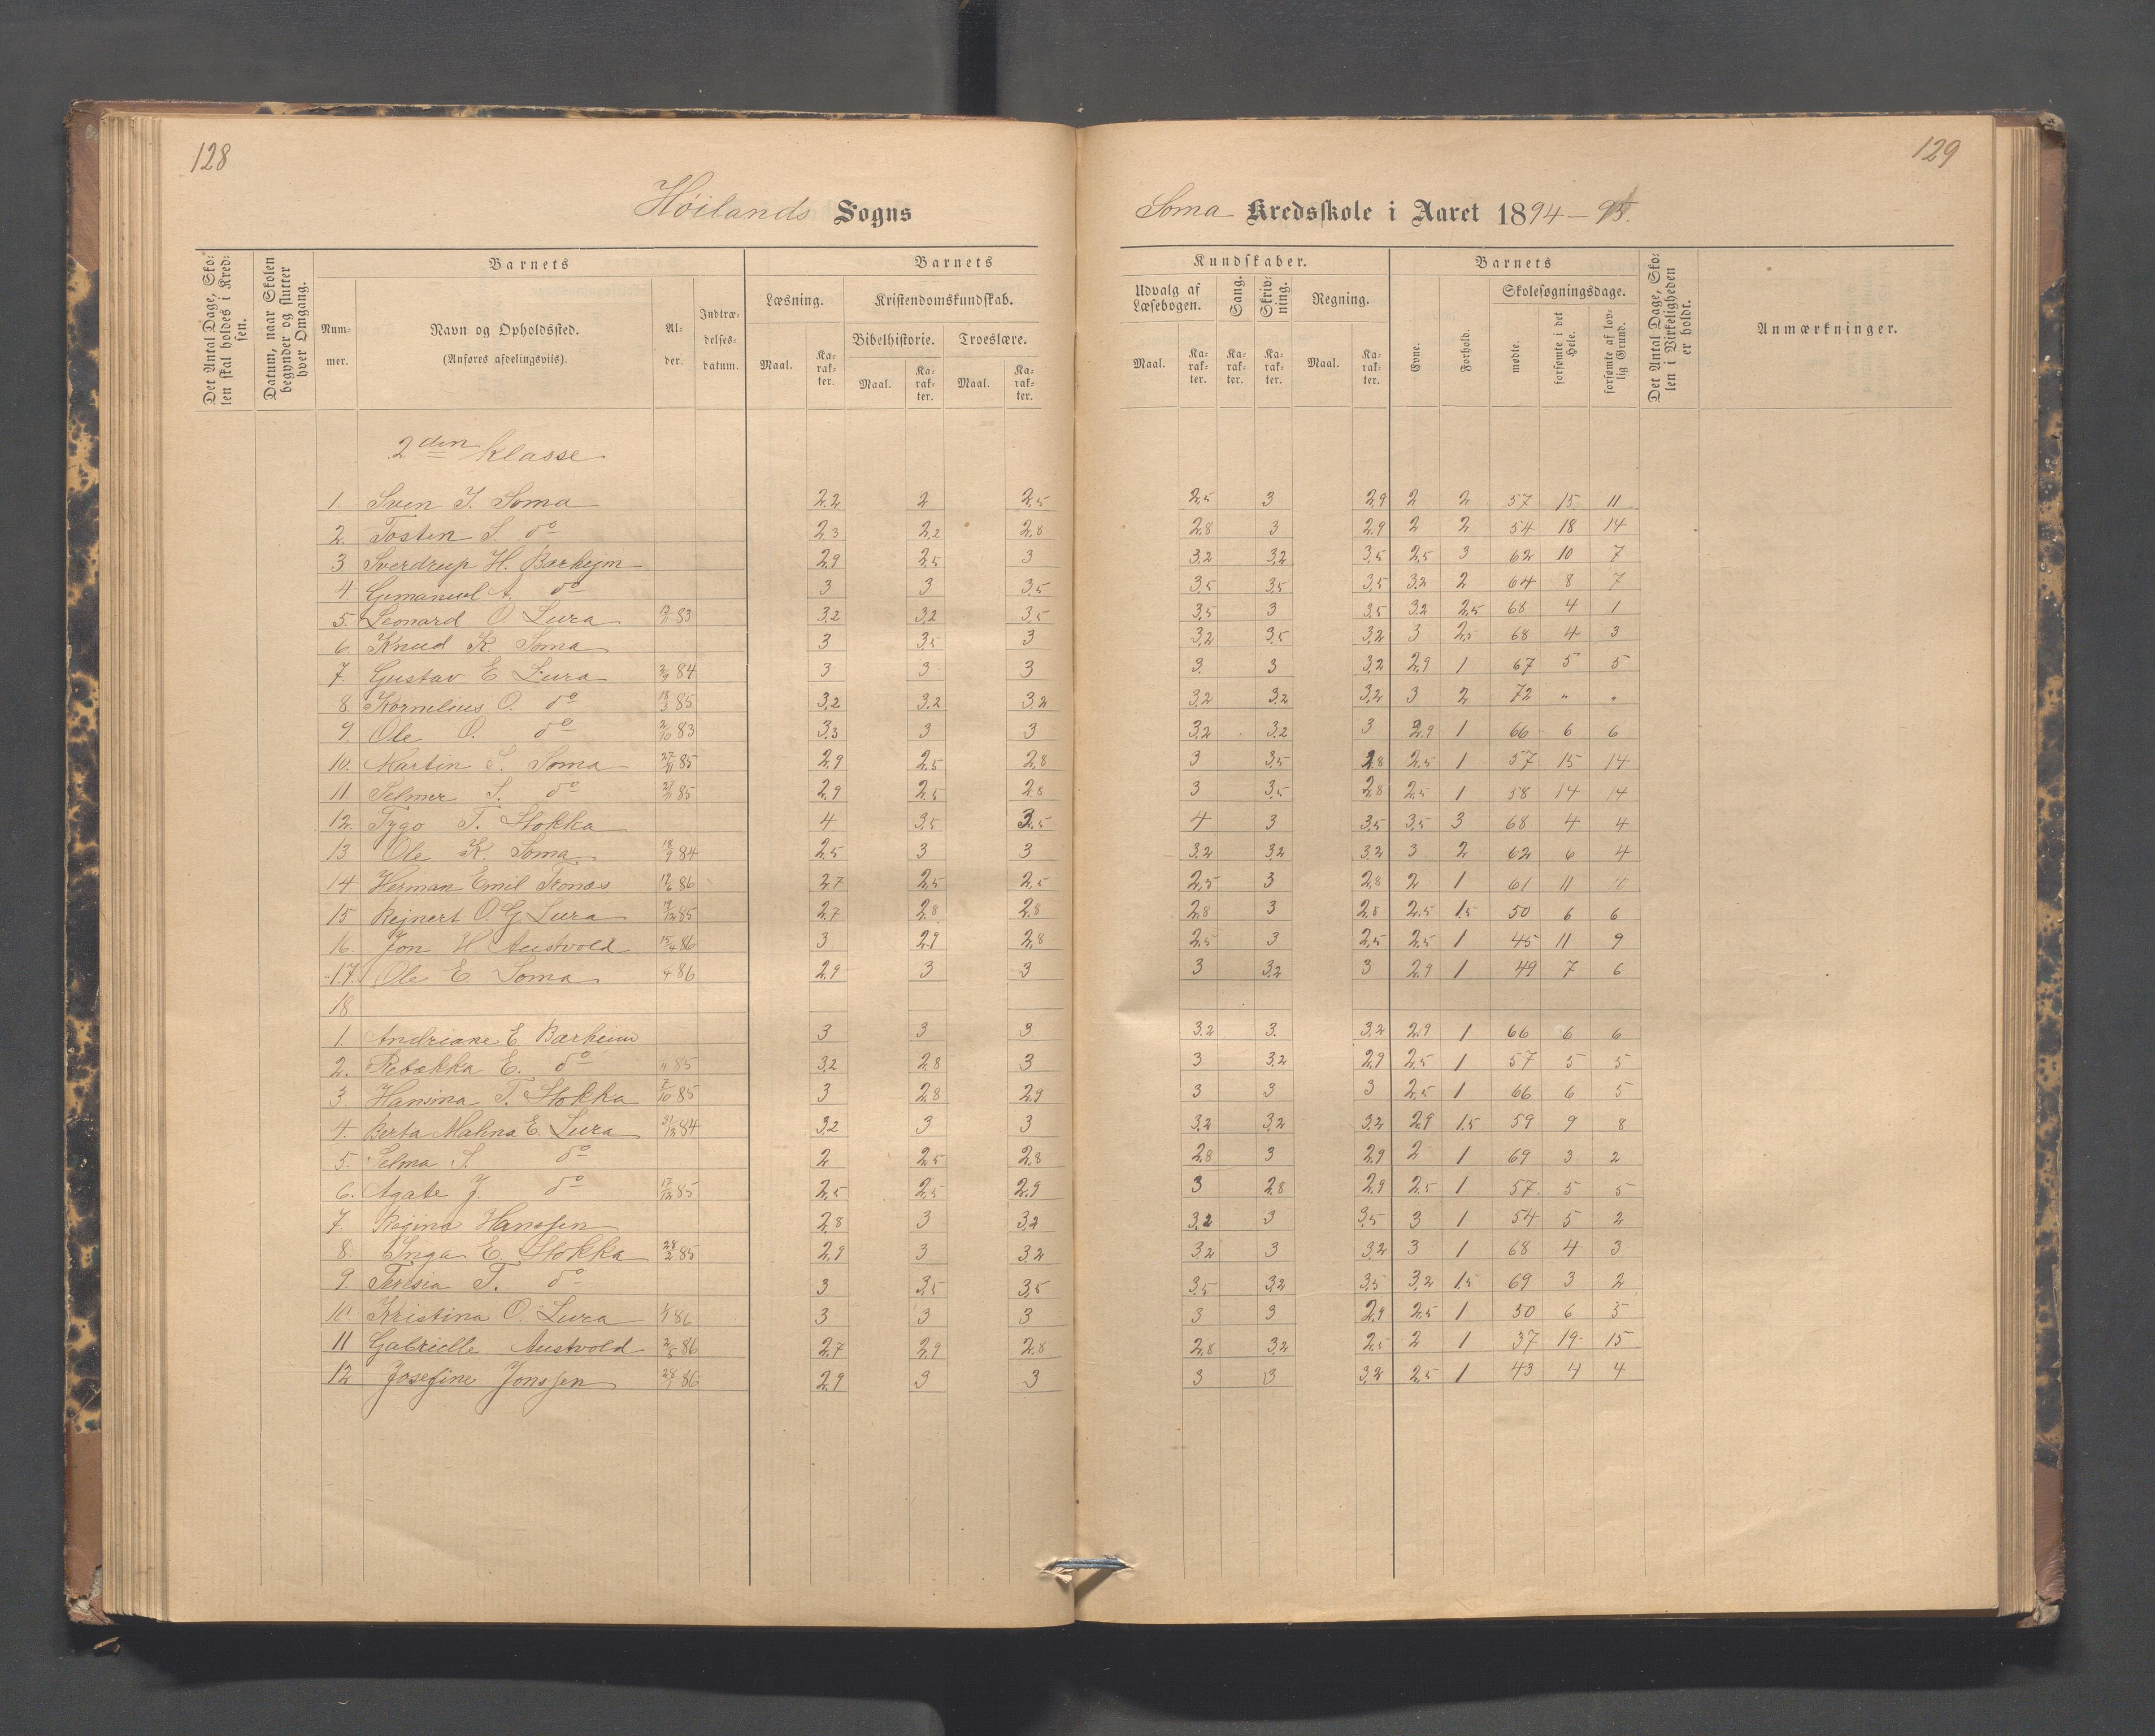 128
129
Høilands Sogns
Soma Kredsskole i Aaret 1894-95.
Det Antal Dage, Skolen skal holdes i Kredsen.
Datum, naar Skolen begynder og slutter hver Omgang.
Barnets
Nummer.
Navn og Opholdssted.
(Anføres afdelingsviis).
Alder.
Indtrædelsesdatum.
Barnets
Læsning.
Maal. Karakter.
Kristendomskundskab.
Bibelhistorie. Troeslære.
Maal. Karakter. Maal. Karakter.
Kundskaber.
Udvalg af Læsebogen.
Maal. Karakter.
Sang. Karakter.
Skrivning. Karakter.
Regning.
Maal. Karakter.
Barnets
Evne. Forhold.
Skolesøgningsdage.
mødte. forsømte i det Hele. forsømte af lovlig Grund.
Det Antal Dage, Skolen i Virkeligheden er holdt.
Anmærkninger.
2den Klasse
1. Sven J. Soma 2,2 2 2,5 2,5 3 2,9 2 2 57 15 11
2. Tosten S. do 2,3 2,2 2,8 2,8 3 2,9 2 2 54 18 14
3 Sverdrup H. Barheim 2,9 2,5 3 3,2 3,2 3,5 2,5 3 62 10 7
4 A. do 3 3 3,5 3,5 3,5 3,5 3,2 2 64 8 7
5. Leonard O. Lura 12/11 83 3,2 3,2 3,5 3,5 3 3,5 3,2 2,5 68 4 1
6. Knud K. Soma 3 3,5 3 3,2 3,5 3,2 3 2,5 68 4 3
7. Gustav E. Lura 84 3 3 3 3 3 3,2 2,9 1 67 5 5
8. Kornelius O. do 18/3 85 3,2 3,2 3,2 3,2 3,2 3,2 3 2 72 " "
9. Ole O. do 2/10 83 3,3 3 3 3,2 3,2 3 2,9 1 66 6 6
10. Martin S. Soma 27/11 85 2,9 2,5 2,8 3 3,5 2,8 2,5 1 57 15 14
11 Selmer S. do 27/11 85 2,9 2,5 2,8 3 3,5 2,8 2,5 1 58 14 14
12. Tygo T. Stokka 4 3,5 3,5 4 3 3,5 3,5 3 68 4 4
13 Ole K. Soma 18/9 84 2,5 3 3 3,2 3,2 3,2 3 2 62 6 4
14 Herman Emil Tronæs 86 2,7 2,5 2,5 2,5 3 2,8 2 1 61 11
15 Rejnert O. G. Lura 17/12 85 2,7 2,8 2,8 2,8 3 2,8 2,5 1,5 50 6 6
16. Jon H. Austvold 15/4 86 3 2,9 2,8 2,5 3 2,5 2,5 1 45 11 9
17. Ole E. Soma 4 86 2,9 3 3 3 3,2 3 2,9 1 49 7 6
18
1. Andreane E. Barheim 3 3 3 3,2 3. 3,2 2,9 1 66 6 6
2. Rebækka E. do 11 85 3,2 2,8 3 3 3,2 2,9 2,5 1 57 5 5
3. Hansina T. Stokka 7/10 85 3 2,8 2,9 3 3 3 2,5 1 66 6 5
4. Berta Malena E. Lura 31/12 84 3,2 3 3 3,2 3,2 3,2 2,9 1,5 59 9 8
5. Selma S. do 2 2,5 2,8 2,8 3 2,9 2 1 69 3 2
6. Agate J. do 17/12 85 2,5 2,5 2,9 3 2,8 2,9 2,5 1 57 5 5
7. Regina Hanssen 2,8 3 3,2 3,2 3 3,5 3 1 54 5 2
8. Inga E. Stokka 28/2 85 2,9 3 3,2 3,2 3 3,2 3 1 68 4 3
9. Teresia T. do 3 3,5 3,5 3,5 3,2 3,5 3,2 1,5 69 3 2
10 Kristina O. Lura 86 3 3 3 3 3 2,9 2,5 1 50 6 5
11 Gabrielle Austvold 2/5 86 2,7 2,9 2,8 2,8 3,2 2,5 2 1 37 19 15
12 Josefine Jonssen 86 2,9 3 3 3 3 3,2 2,5 1 43 4 4